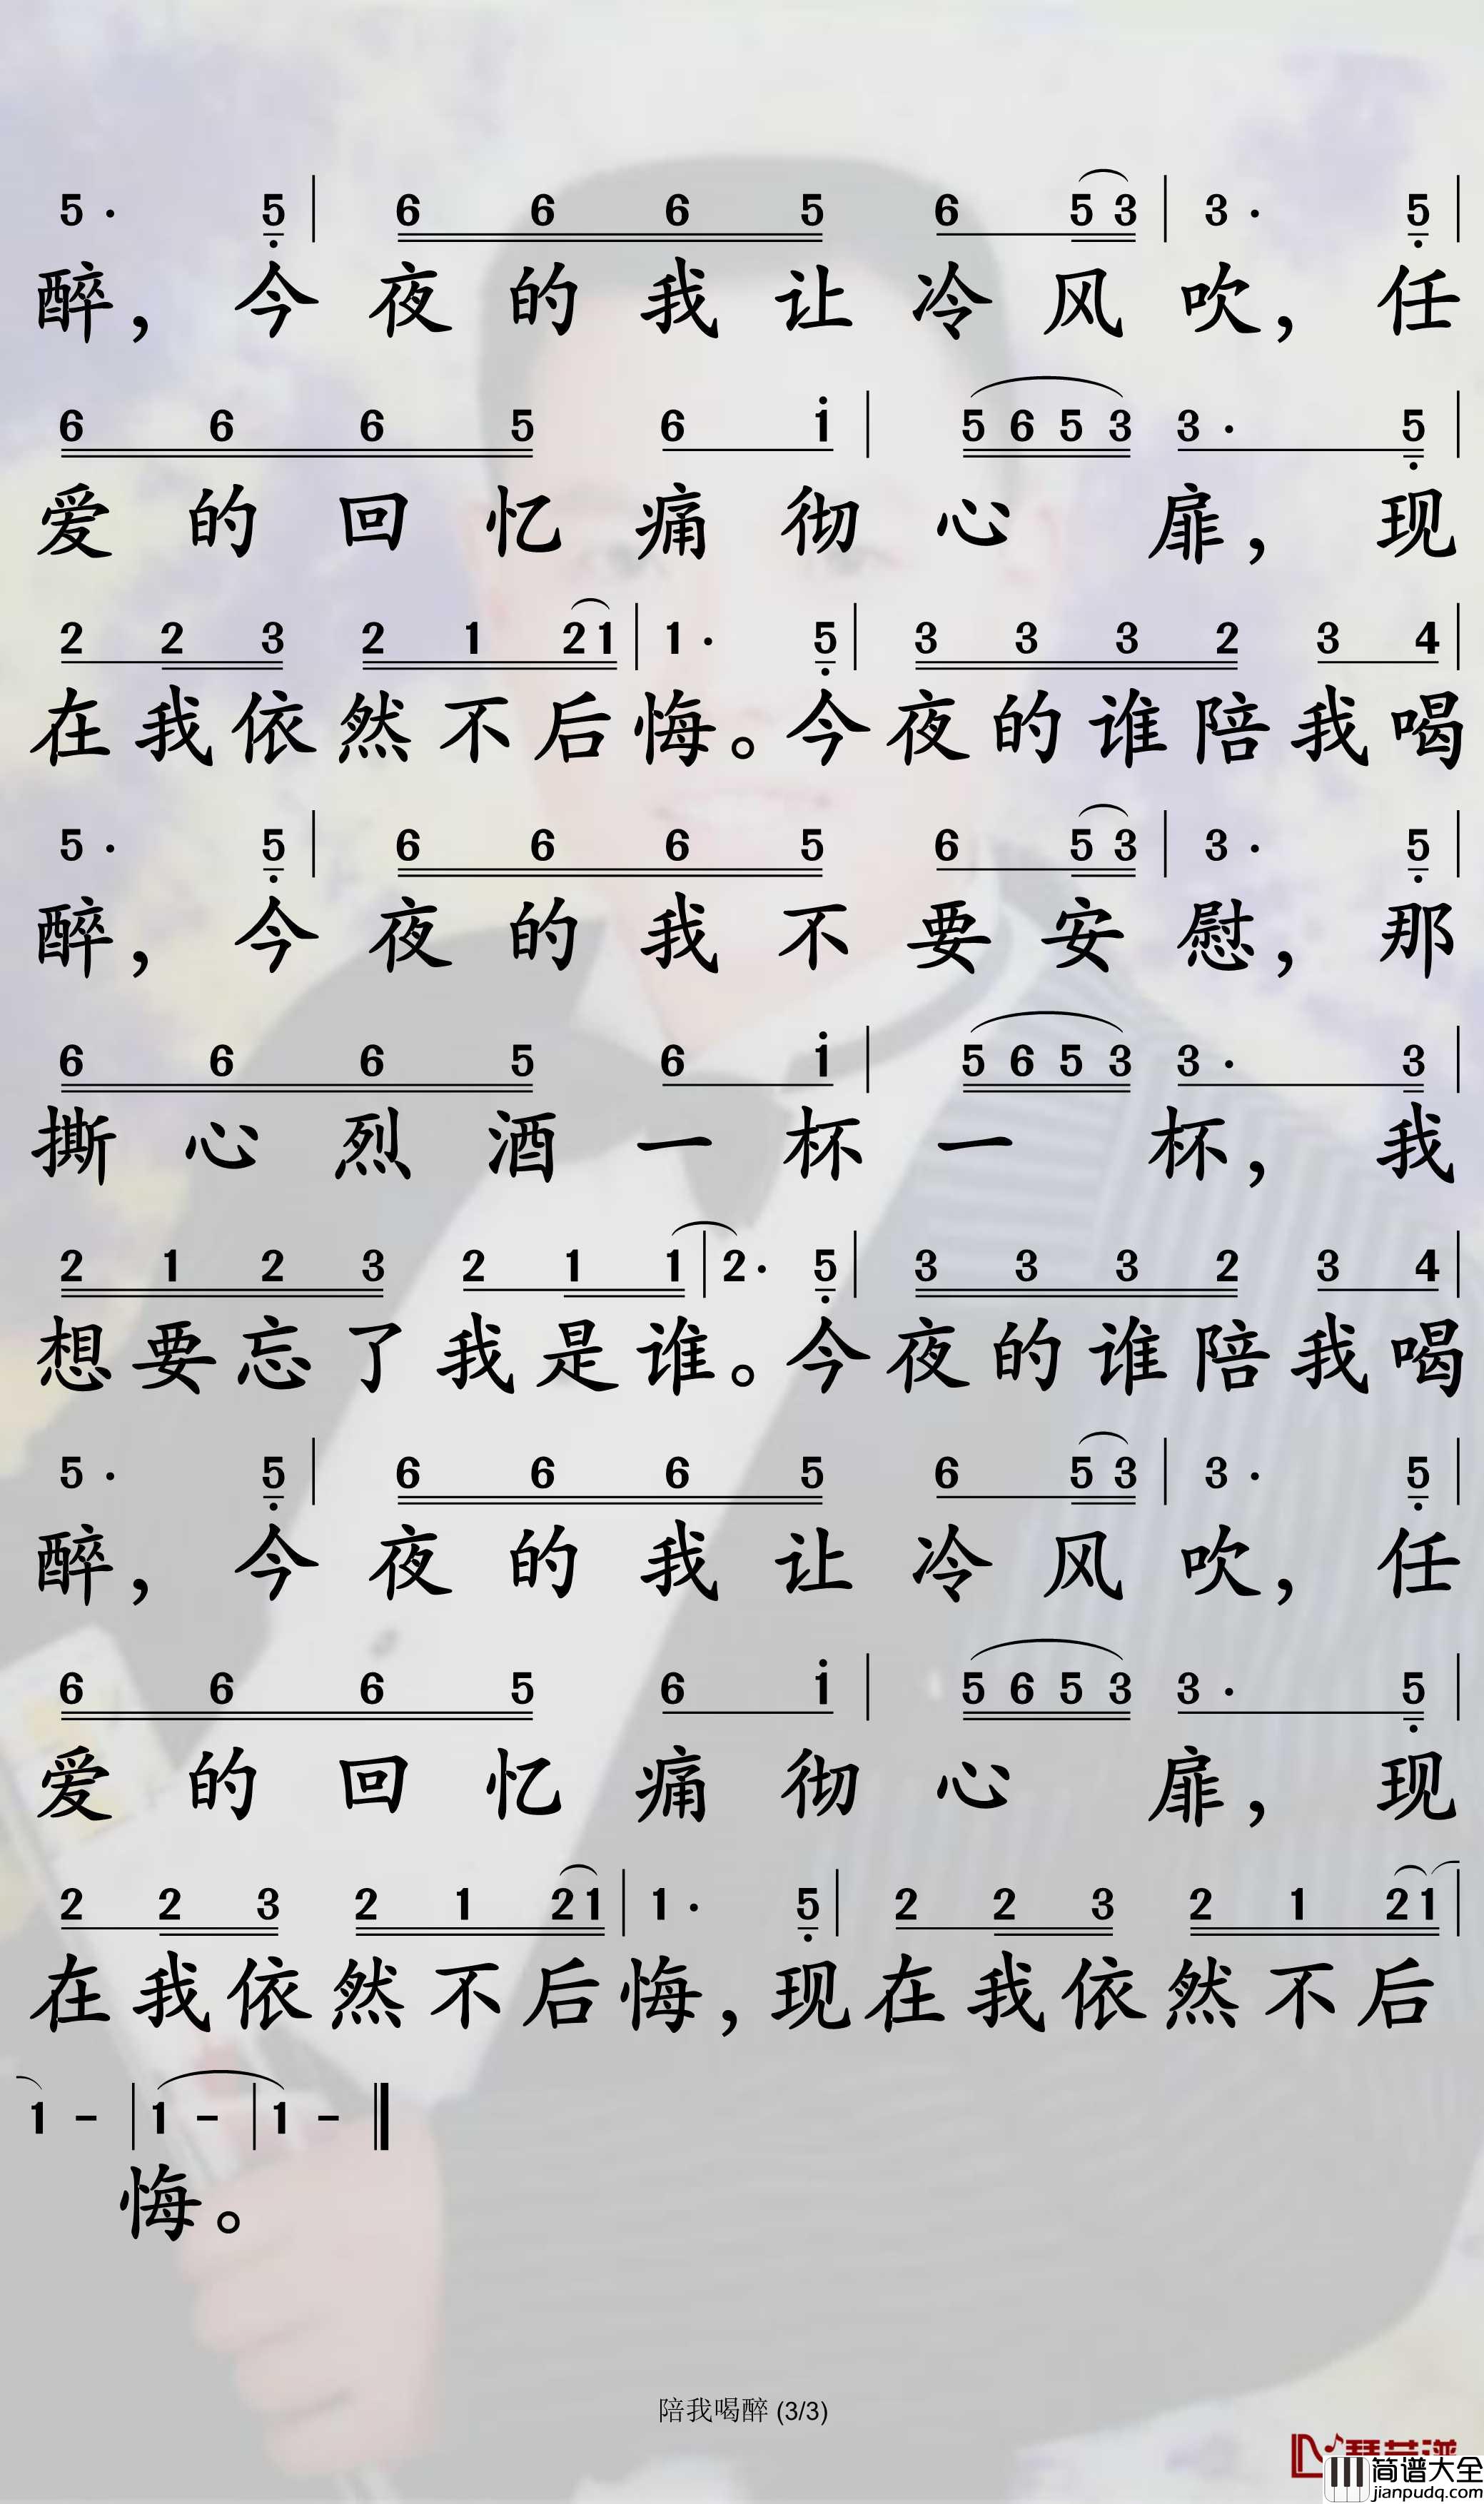 5· 5 | 6 6 6 5 6 5 3 | 3· 5 |
醉，今夜的我让冷风吹，任
6 6 6 5 6 i | 5 6 5 3 3· 5 |
爱的回忆痛彻心扉，现
2 2 3 2 1 2 1 | 1· 5 | 3 3 3 2 3 4 |
在我依然不后悔。今夜的谁陪我喝
5· 5 | 6 6 6 5 6 5 3 | 3· 5 |
醉，今夜的我不要安慰，那
6 6 6 5 6 i | 5 6 5 3 3· 3 |
撕心烈酒一杯一杯，我
2 1 2 3 2 1 1 | 2· 5 | 3 3 3 2 3 4 |
想要忘了我是谁。今夜的谁陪我喝
5· 5 | 6 6 6 5 6 5 3 | 3· 5 |
醉，今夜的我让冷风吹，任
6 6 6 5 6 i | 5 6 5 3 3· 5 |
爱的回忆痛彻心扉，现
2 2 3 2 1 2 1 | 1· 5 | 2 2 3 2 1 2 1 |
在我依然不后悔，现在我依然不后
1 - | 1 - | 1 - ‖
悔。
陪我喝醉 (3/3)
简谱大全
jianpudq.com